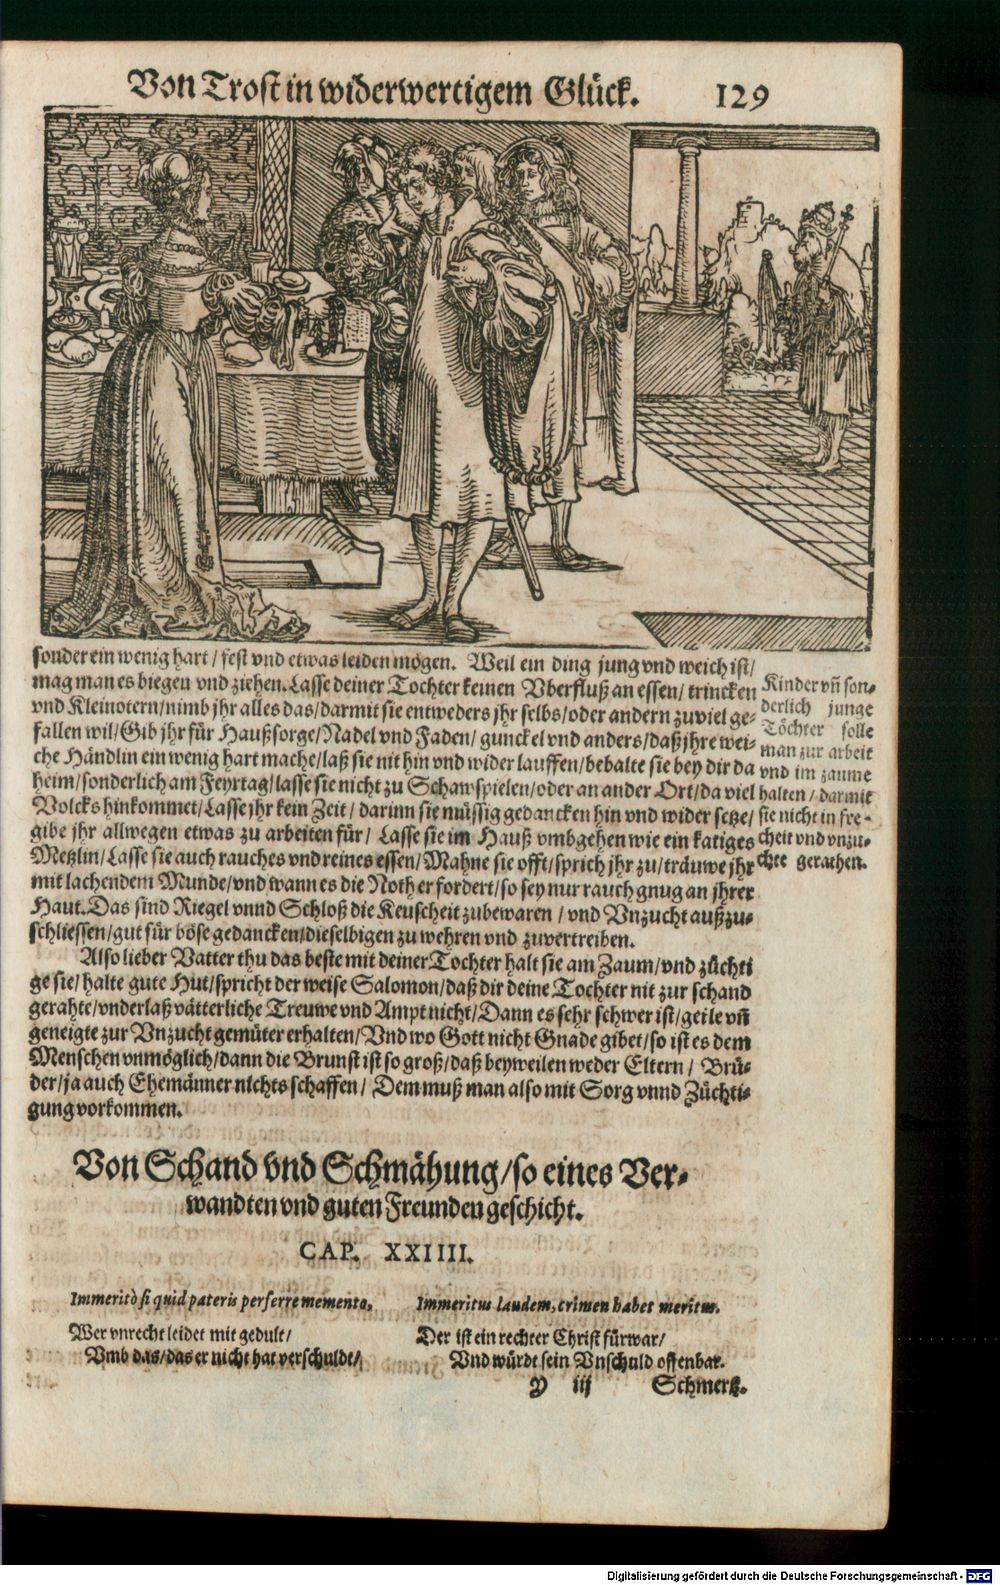 Von Trost in widerwertigem Glück. 129
sonder ein wenig hart / fest vnd etwas leiden mögen. Weil ein ding jung vnd weich ist /
mag man es biegen vnd ziehen. Lasse deiner Tochter keinen Vberfluß an essen / trincken
vnd Kleinotern / nimb jhr alles das / darmit sie entweders jhr selbs / oder andern zuviel ge-
fallen wil / Gib jhr für Haußsorge / Nadel vnd Faden / gunckel vnd anders / daß jhre wei-
che Händlin ein wenig hart mache / laß sie nit hin vnd wider lauffen / behalte sie bey dir da
heim / sonderlich am Feyrtag / lasse sie nicht zu Schawspielen / oder an ander Ort / da viel
Volcks hinkommet / Lasse jhr kein Zeit / darinn sie müssig gedancken hin vnd wider setze /
gibe jhr allwegen etwas zu arbeiten für / Lasse sie im Hauß vmbgehen wie ein katiges
Metzlin / Lasse sie auch rauches vnd reines essen / Mahne sie offt / sprich jhr zu / träuwe jhr
mit lachendem Munde / vnd wann es die Noth erfordert / so sey nur rauch gnug an jhrer
Haut. Das sind Riegel vnnd Schloß die Keuscheit zubewaren / vnd Vnzucht außzu-
schliessen / gut für böse gedancken / dieselbigen zu wehren vnd zuvertreiben.
Kinder vñ son-
derlich junge
Töchter solle
man zur arbeit
vnd im zaume
halten / darmit
sie nicht in fre-
cheit vnd vnzu-
chte gerathen.
Also lieber Vatter thu das beste mit deiner Tochter halt sie am Zaum / vnd züchti
ge sie / halte gute Hut / spricht der weise Salomon / daß dir deine Tochter nit zur schand
gerahte / vnderlaß vätterliche Treuwe vnd Ampt nicht / Dann es sehr schwer ist / geile vñ
geneigte zur Vnzucht gemüter erhalten / Vnd wo Gott nicht Gnade gibet / so ist es dem
Menschen vnmöglich / dann die Brunst ist so groß / daß beyweilen weder Eltern / Brü-
der / ja auch Ehemänner nichts schaffen / Dem muß man also mit Sorg vnnd Züchti-
gung vorkommen.
Von Schand vnd Schmähung / so eines Ver-
wandten vnd guten Freunden geschicht.
CAP. XXIIII.
Immeritò si quid pateris perferre memento,
Wer vnrecht leidet mit gedult /
Vmb das / das er nicht hat verschuldt /
Immeritus laudem, crimen habet meritus.
Der ist ein rechter Christ fürwar /
Vnd würdt sein Vnschuld offenbar.
Y iij Schmertz.
Digitalisierung gefördert durch die Deutsche Forschungsgemeinschaft - DFG